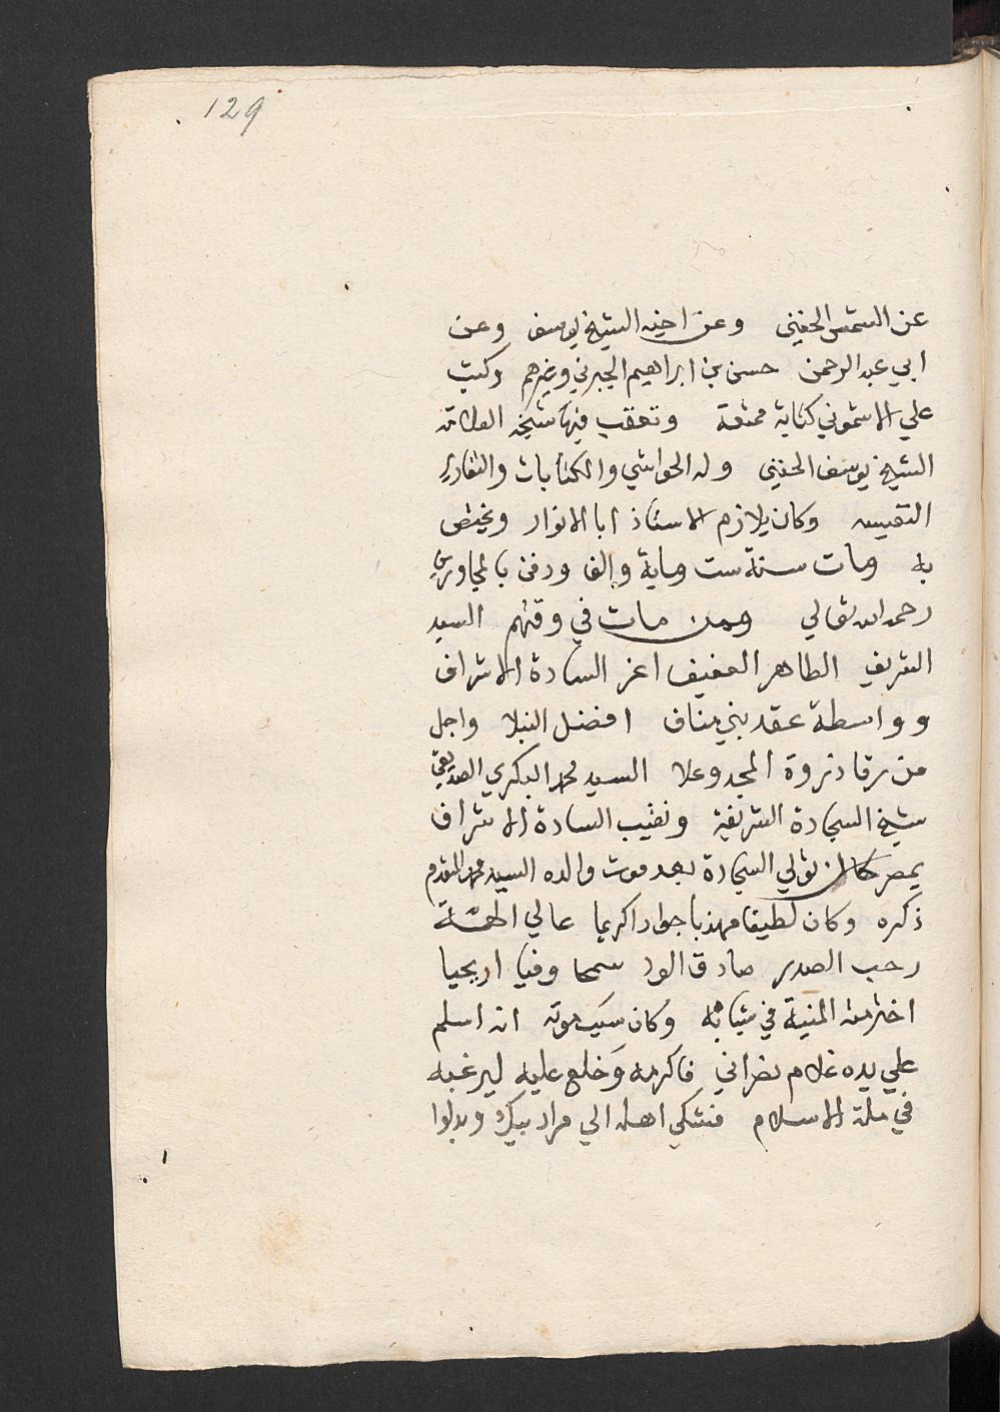 129
عن الشمس الحفني وعن اخيه الشيخ يوسف وعن
ابي عبد الرحمن حسن بن ابراهيم الجبرتي وغيرهم وكتب
علي الاشموني كتابة ممتعة وتعقب فيها شيخه العلامة
الشيخ يوسف الحفني وله الحواشي والكتابات والتقارير
النفيسه وكان يلازم الاستاذ ابا الانوار ويختص
به ومات سنة ست وماية والف ودفن بالمجاورين
رحمه الله تعالي وممن مات في وقتهم السيد
الشريف الطاهر العفيف اعز السادة الاشراف
وواسطة عقد بني مناف افضل النبلا واجل
من رقا ذروة المجد وعلا السيد محمد البكري الصديقي
شيخ السجادة الشريفة ونقيب السادة الاشراف
بمصر كان تولي السجادة بعد موت والده السيد محمد المتقدم
ذكره وكان لطيفا مهذبا جوادا كريما عالي الهمة
رحب الصدر صادق الود سمحا وفيا اريحيا
اخترمته المنية في شبابه وكان سبب موته انه اسلم
علي يده غلام نصراني فاكرمه وخلع عليه ليرغبه
في ملة الاسلام فتشكي اهله الي مراد بيك وبذلوا